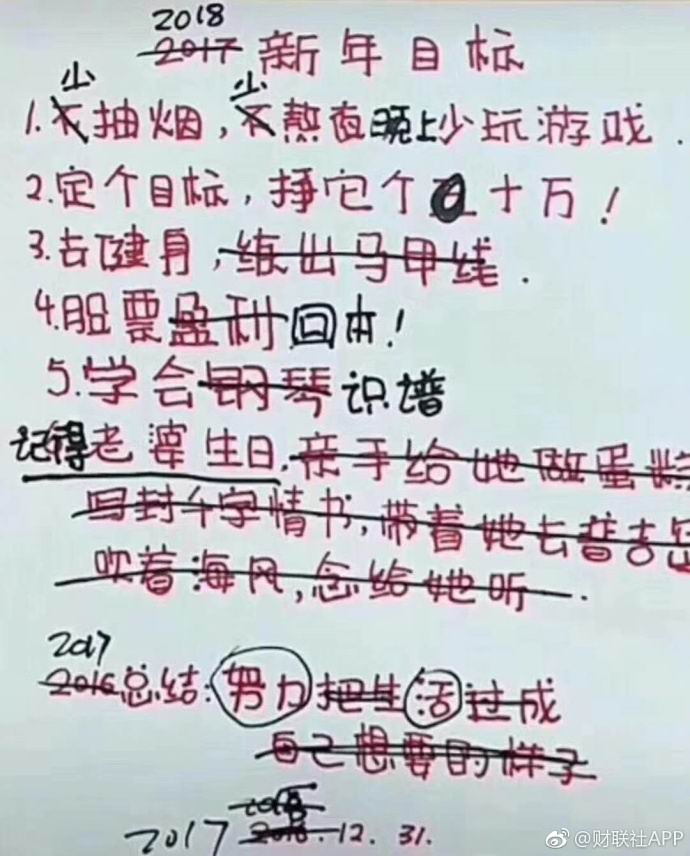 2018
2017 新年目标
少 少
1.不抽烟,不熬夜晚上少玩游戏.
2.定个目标,挣它个0十万!
3.去健身,练出马甲线.
4.股票盈利回本!
5.学会钢琴识谱
记得老婆生日.亲手给她做蛋糕
写封千字情书,带着她去普吉岛
吹着海风,念给她听.
2017
2016总结:努力把生活过成
自己想要的样子
2017 2016.12.31.
@财联社APP